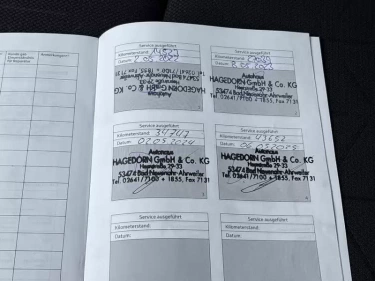 Service ausgeführt
Kilometerstand:
Datum:
Autohaus
HAGEDORN GmbH & Co. KG
Heerstraße 29-33
53474 Bad Neuenahr-Ahrweiler
Tel. 02641/7100 + 1855, Fax 7131
Service ausgeführt
Kilometerstand:
Datum:
Autohaus
HAGEDORN GmbH & Co. KG
Heerstraße 29-33
53474 Bad Neuenahr-Ahrweiler
Tel. 02641/7100 + 1855, Fax 7131
Service ausgeführt
Kilometerstand: 34747
Datum: 02.05.2024
Autohaus
HAGEDORN GmbH & Co. KG
Heerstraße 29-33
53474 Bad Neuenahr-Ahrweiler
Tel. 02641/7100 + 1855, Fax 7131
Service ausgeführt
Kilometerstand: 43652
Datum: 06.05.2025
Autohaus
HAGEDORN GmbH & Co. KG
Heerstraße 29-33
53474 Bad Neuenahr-Ahrweiler
Tel. 02641/7100 + 1855, Fax 7131
Service ausgeführt
Kilometerstand:
Datum:
Service ausgeführt
Kilometerstand:
Datum: